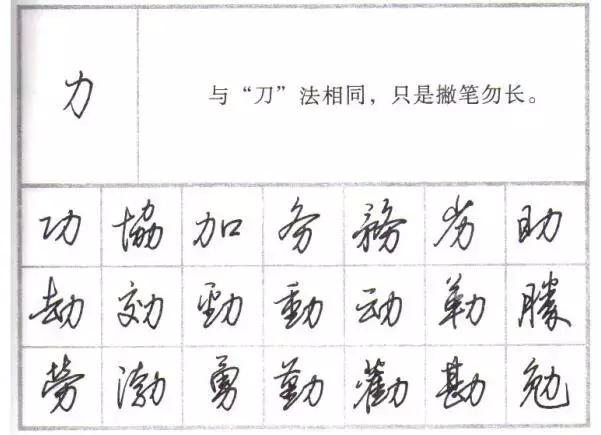 力
与“刀”法相同，只是撇笔勿长。
功 協 加 务 務 劣 助
劫 効 勁 動 动 勒 勝
劳 渤 勇 勤 勸 勘 勉